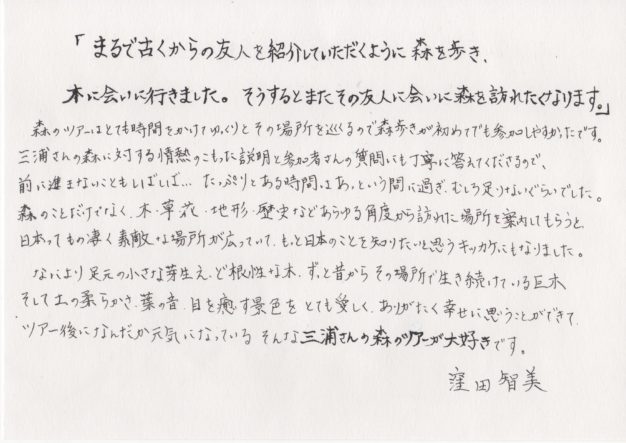 「まるで古くからの友人を紹介していただくように森を歩き、
木に会いに行きました。そうするとまたその友人に会いに森を訪れたくなります。」
森のツアーはとても時間をかけてゆっくりとその場所を巡るので森歩きが初めてでも参加しやすかったです。
三浦さんの森に対する情熱のこもった説明と参加者さんの質問にも丁寧に答えてくださるので、
前に進まないこともしばしば… たっぷりとある時間はあっという間に過ぎ、むしろ足りないぐらいでした。
森のことだけでなく、木・草花・地形・歴史などあらゆる角度から訪れた場所を案内してもらうと、
日本ってもの凄く素敵な場所が広っていて、もっと日本のことを知りたいと思うキッカケにもなりました。
なにより足元の小さな芽生え、ど根性な木、ずっと昔からその場所で生き続けている巨木
そして土の柔らかさ、葉の音、目を癒す景色をとても愛しく、ありがたく幸せに思うことができて、
ツアー後になんだか元気になっている そんな三浦さんの森のツアーが大好きです。
窪田智美